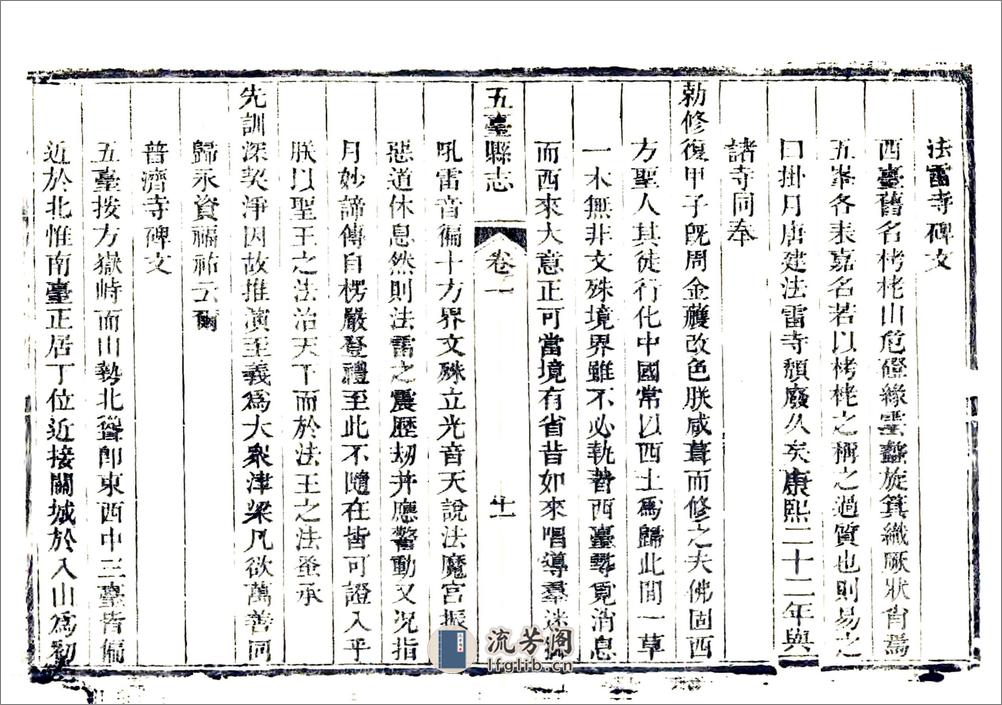 法雷寺碑文
西臺舊名栲栳山危磴緣雲盤旋箕織厥狀肖焉
五峯各表嘉名若以栲栳之稱之過質也則易之
曰掛月唐建法雷寺頹廢久矣康熙二十二年與
諸寺同奉
勅修復甲子既周金雘改色朕咸葺而修之夫佛固西
方聖人其徒行化中國常以西土為歸此間一草
一木無非文殊境界雖不必執著西臺尋覓消息
而西來大意正可當境有省昔如來唱導羣迷
五臺縣志 卷首一 十一
吼雷音徧十方界文殊立光音天說法魔宮振
惡道休息然則法雷之震歷劫并應警動又況指
月妙諦傳自楞嚴登禮至此不隨在皆可證入乎
朕以聖王之法治天下而於法王之法蚤承
先訓深契淨因故推演至義為大衆津梁凡欲萬善同
歸永資福祐云爾
普濟寺碑文
五臺按方嶽峙而山勢北聳卽東西中三臺皆偏
近於北惟南臺正居丁位近接關城於入山為初
流芳阁
lfglib.cn